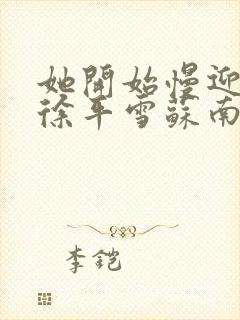 她開始慢迎
徐平雪蘇南
李鎧